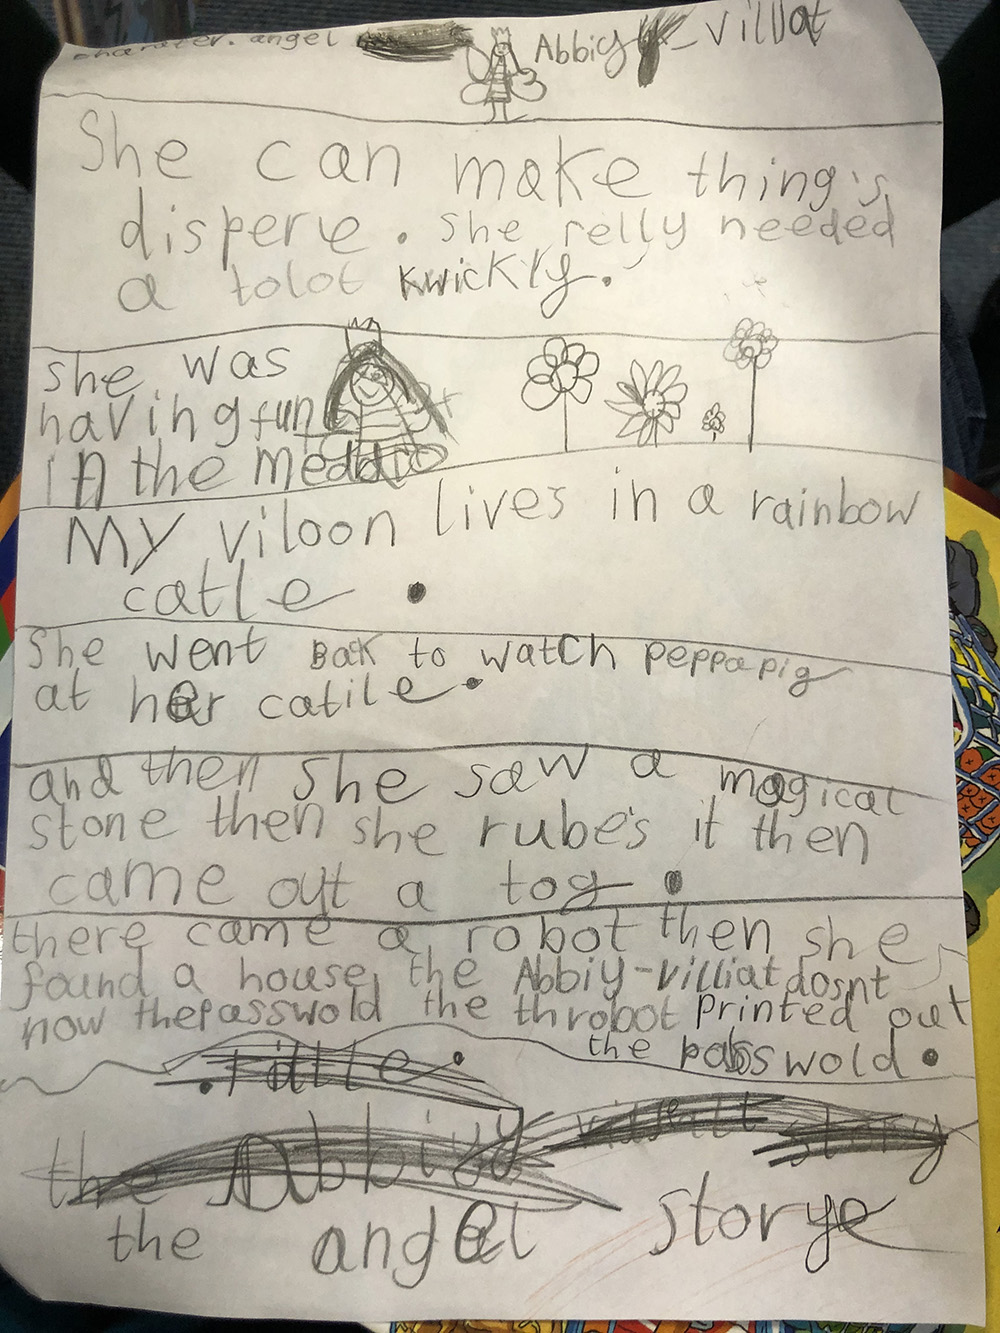 charater. angel Abbiy-villat
She can make thing's
disperve. she relly needed
a tolot kwickly.
she was
having fun
in the meddo
My viloon lives in a rainbow
catle.
She went Back to watch peppa pig
at her catile.
and then she saw a magical
stone then she rube's it then
came out a tog.
there came a robot then she
found a house, the Abbiy-villiat dosnt
now the passwold the throbot printed out
the passwold.
. Tittle.
the Abbiy villatt story
the angel storye